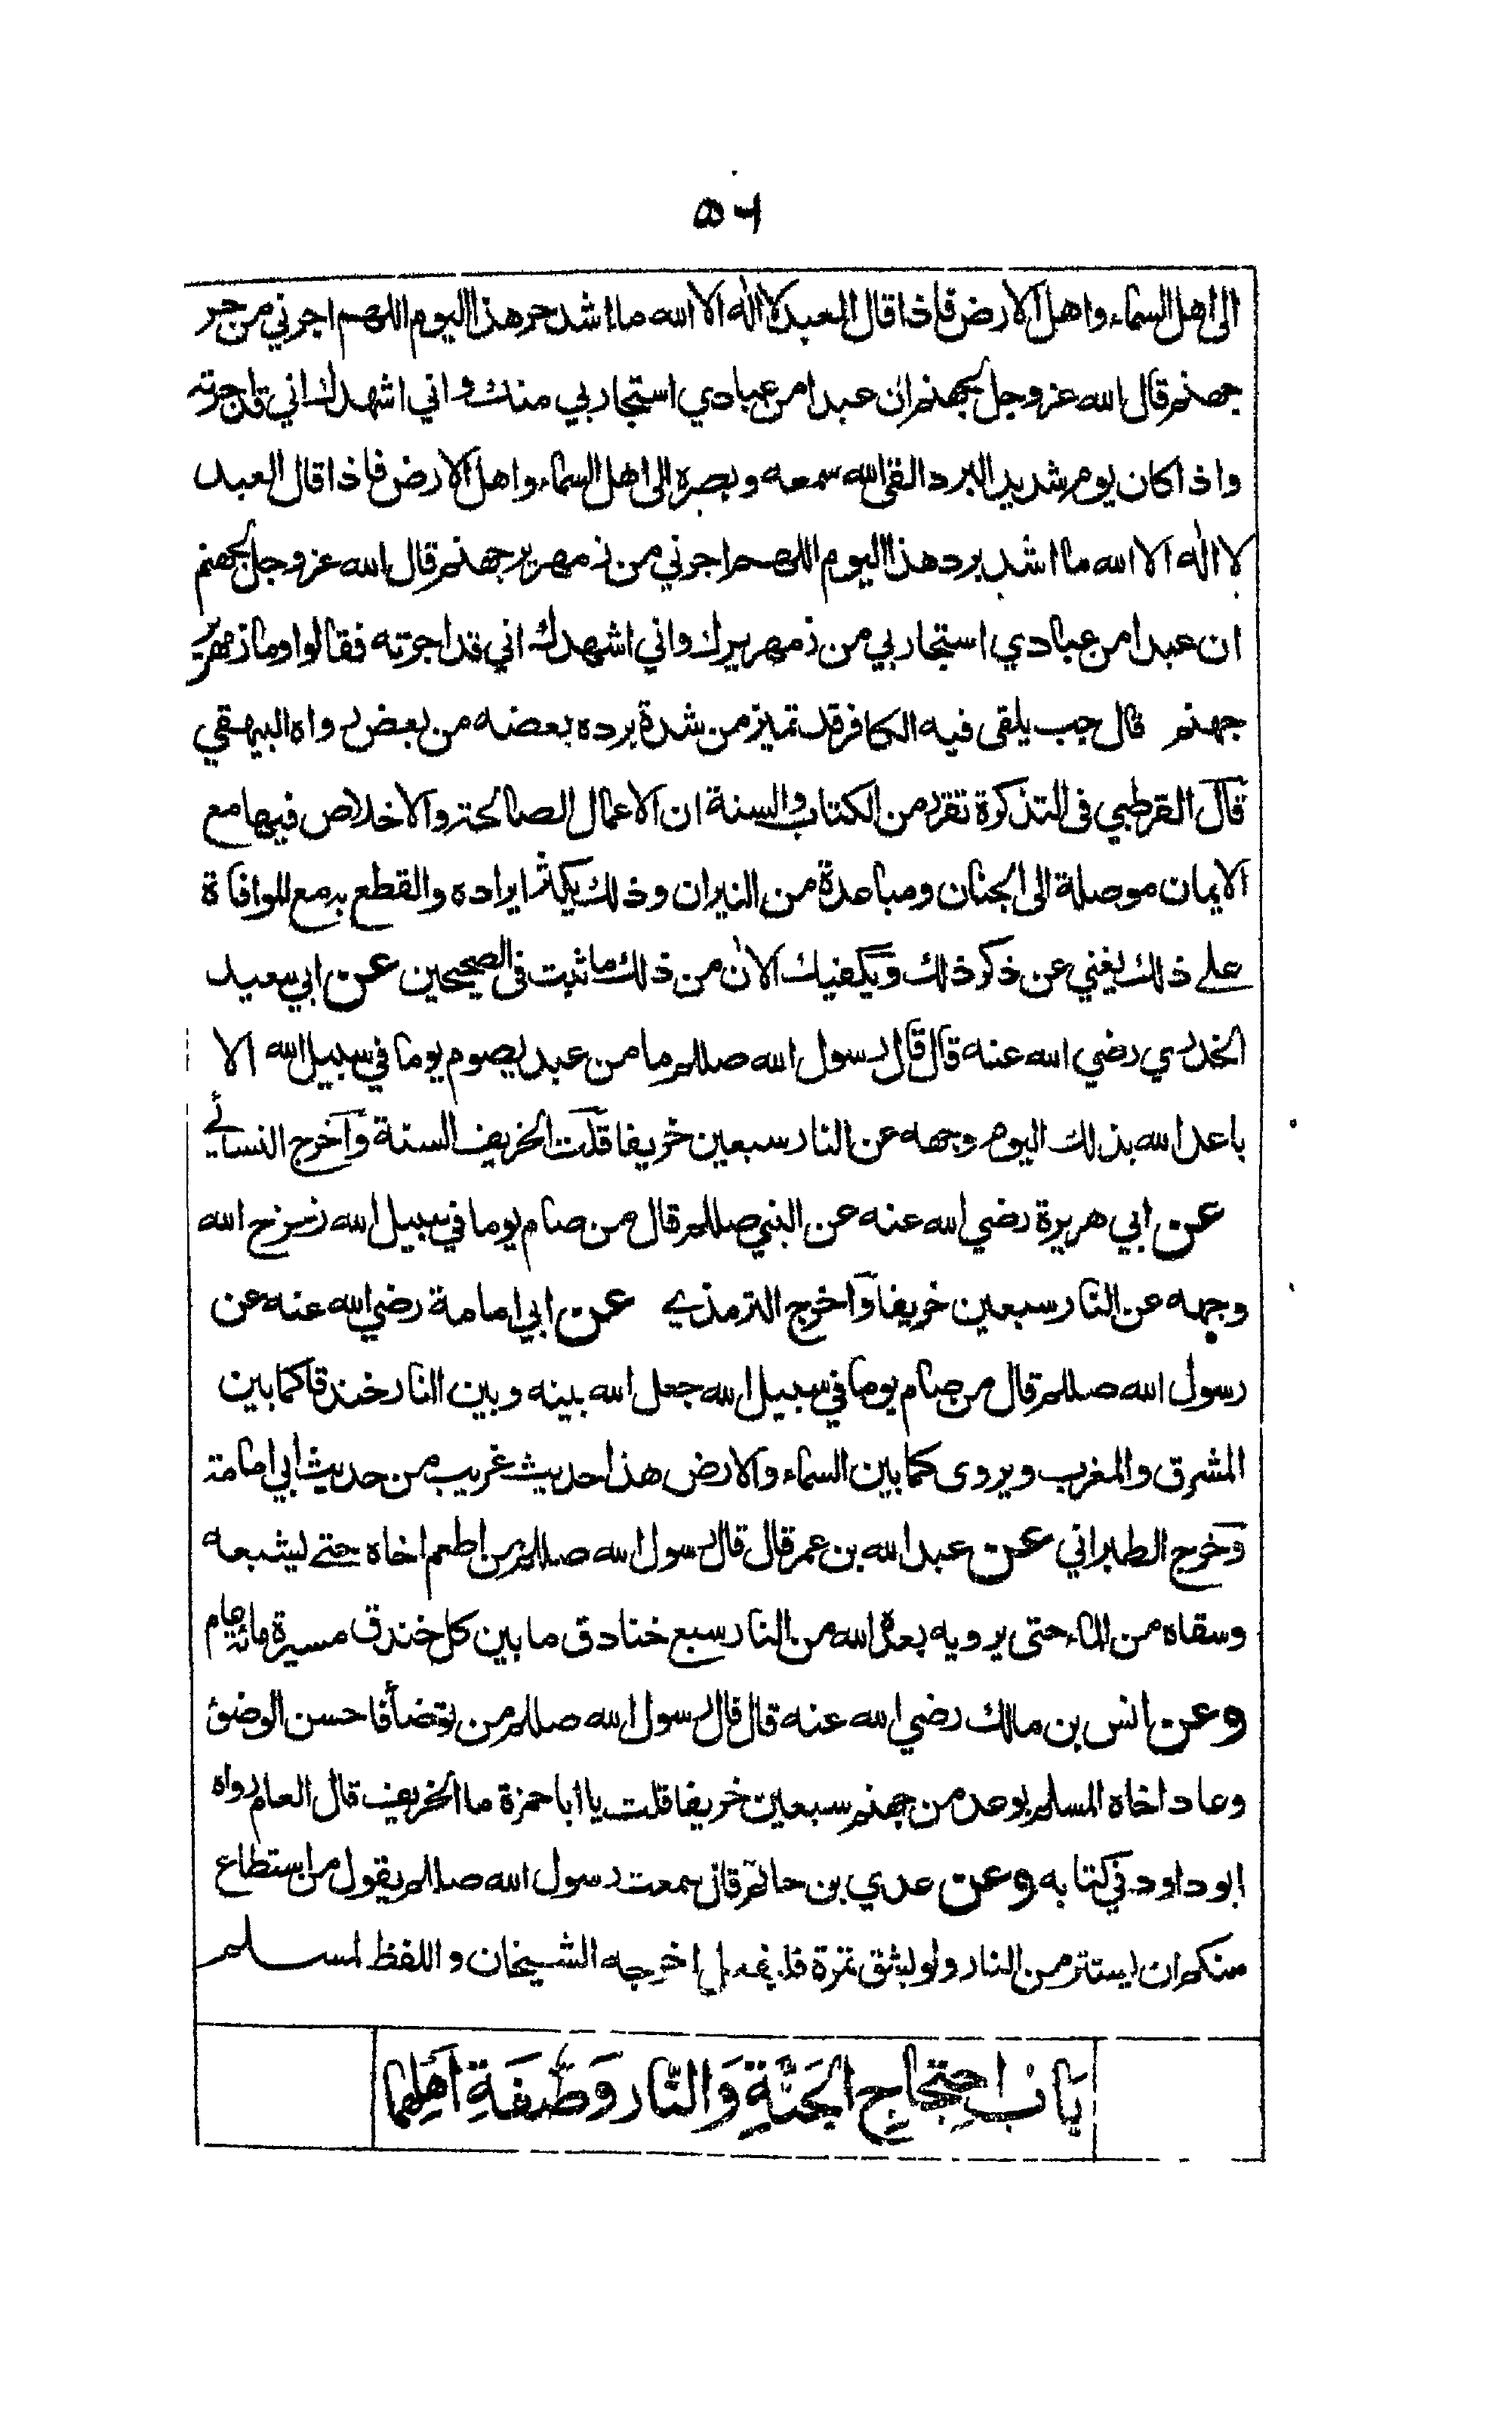 ٥٦
الى اهل السماء واهل الارض فاذا قال العبد لا اله الا الله ما اشد حر هذا اليوم اللهم اجرني من حر
جهنم قال الله عز وجل لجهنم ان عبدا من عبادي استجار بي منك واني اشهدك اني قد اجرته
واذا كان يوم شديد البرد القى الله سمعه وبصره الى اهل السماء واهل الارض فاذا قال العبد
لا اله الا الله ما اشد برد هذا اليوم اللهم اجرني من زمهرير جهنم قال الله عز وجل لجهنم
ان عبدا من عبادي استجار بي من زمهريرك واني اشهدك اني قد اجرته فقالوا وما زمهرير
جهنم قال جب يلقى فيه الكافر قد تميز من شدة برده بعضه من بعض رواه البيهقي
قال القرطبي في التذكرة تقرر من الكتاب والسنة ان الاعمال الصالحة والاخلاص فيها مع
الايمان موصلة الى الجنان ومباعدة من النيران وذلك يكثر ايراده والقطع به مع الموافاة
على ذلك يغني عن ذكر ذلك ويكفيك الان من ذلك ما ثبت في الصحيحين عن ابي سعيد
الخدري رضي الله عنه قال قال رسول الله صللم ما من عبد يصوم يوما في سبيل الله الا
باعد الله بذلك اليوم وجهه عن النار سبعين خريفا قلت الخريف السنة وآخرج النسائي
عن ابي هريرة رضي الله عنه عن النبي صللم قال من صام يوما في سبيل الله زحزح الله
وجهه عن النار سبعين خريفا وآخرج الترمذي عن ابي امامة رضي الله عنه عن
رسول الله صللم قال من صام يوما في سبيل الله جعل الله بينه وبين النار خندقا كما بين
المشرق والمغرب ويروى كما بين السماء والارض هذا حديث غريب من حديث ابي امامة
وخرج الطبراني عن عبد الله بن عمر قال قال رسول الله صللم من اطعم اخاه حتى يشبعه
وسقاه من الماء حتى يرويه بعده الله من النار سبع خنادق ما بين كل خندق مسيرة مائة عام
وعن انس بن مالك رضي الله عنه قال قال رسول الله صللم من توضأ فاحسن الوضوء
وعاد اخاه المسلم بوعد من جهنم سبعين خريفا قلت يا ابا حمزة ما الخريف قال العام رواه
ابو داود في كتابه وعن عدي بن حاتم قال سمعت رسول الله صللم يقول من استطاع
منكم ان يستتر من النار ولو بشق تمرة فليفعل اخرجه الشيخان واللفظ لمسلم
بَاب احتِجَاجِ الجَنَّةِ وَالنَّار وَصِفَةِ اَهلِهِما